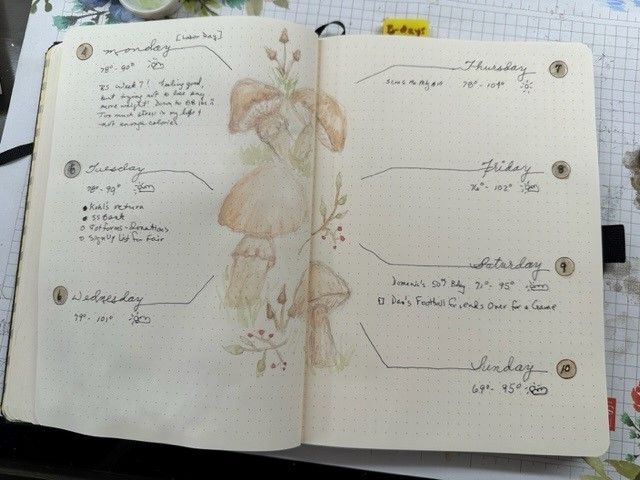 4
monday
[Labor Day]
78° - 90°
RS Week 7! Feeling good,
but trying not to lose any
more weight! Down to 118 lbs
Too much stress in my life &
not enough calories
5
Tuesday
78° - 99°
Kohl's return
SS Bank
Jotforms - Donations
Sign Up List for Fair
6
Wednesday
79° - 101°
B-Days
Thursday
7
78° - 104°
Friday
8
76° - 102°
Saturday
9
Domenic's 50th Bday 71° - 95°
Dan's Football friends Over for a Game
Sunday
10
69° - 95°